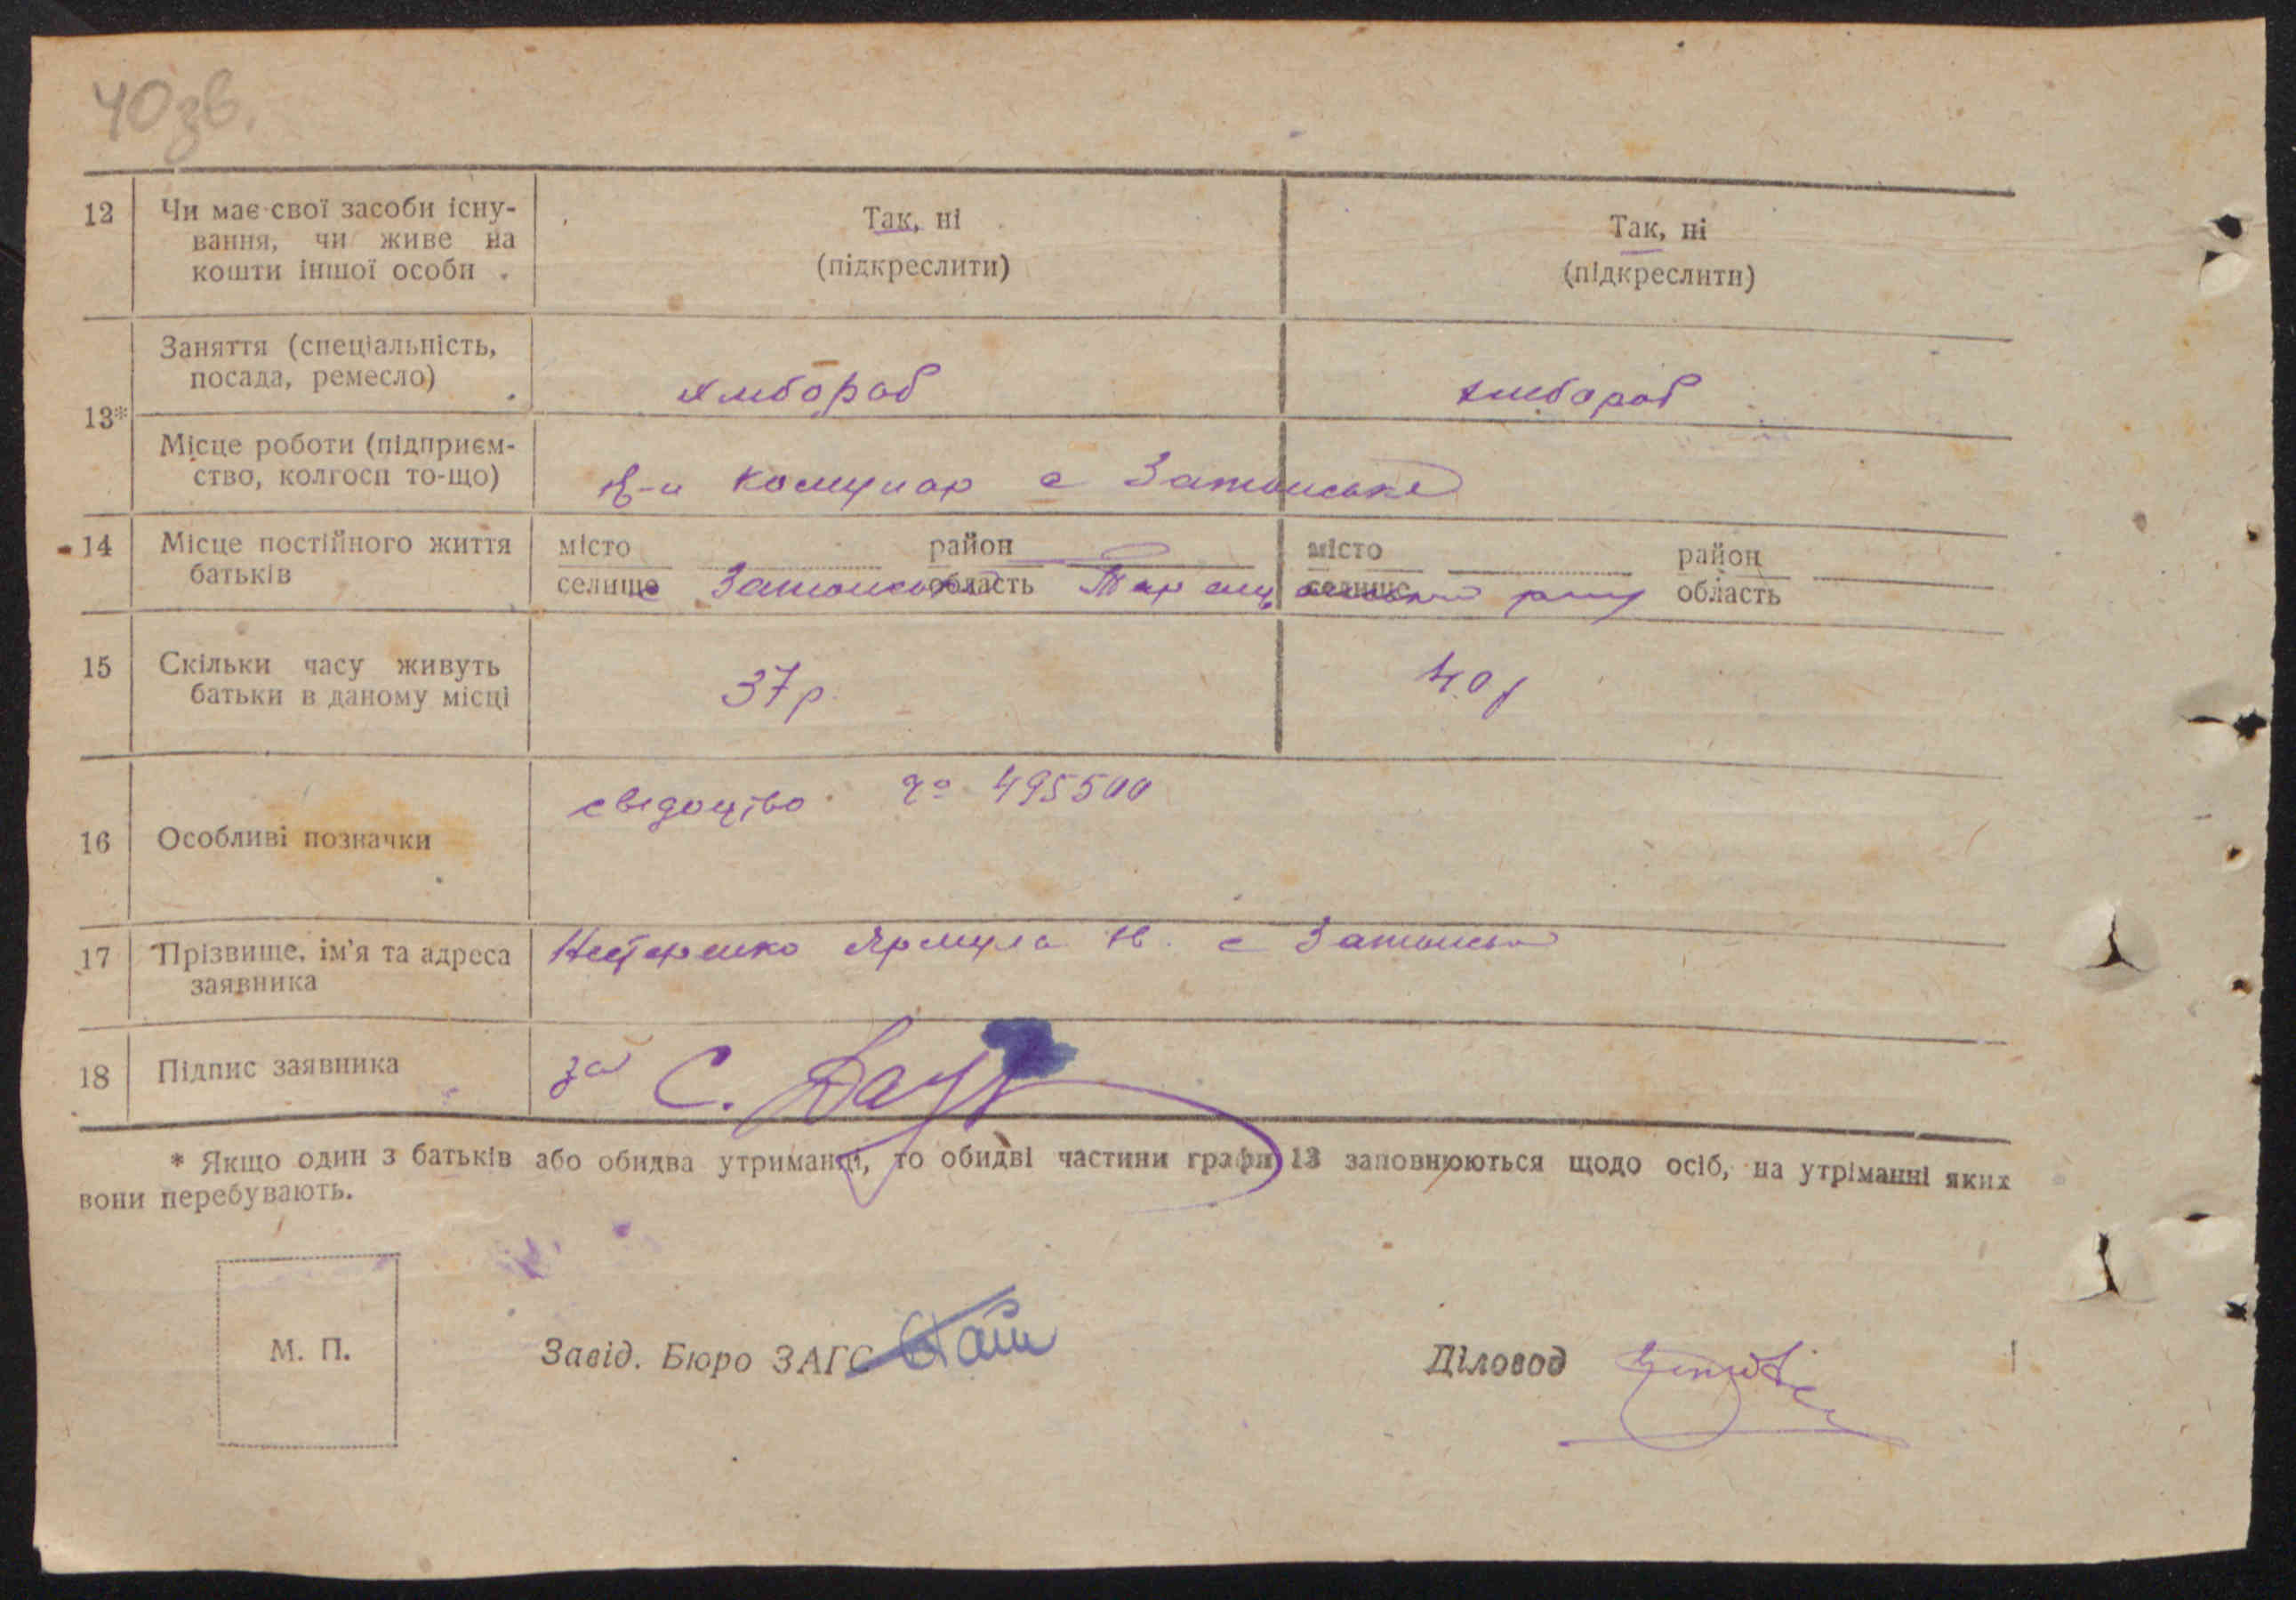 40зв.
12 Чи має свої засоби існу-
вання, чи живе на
кошти іншої особи .
Так, ні
(підкреслити)
Так, ні
(підкреслити)
13*
Заняття (спеціальність,
посада, ремесло)
хлібороб
хлібороб
Місце роботи (підприєм-
ство, колгосп то-що)
комунар с Затонське
14 Місце постійного життя
батьків
місто район
селище область
с Затонське
місто район
селище область
15 Скільки часу живуть
батьки в даному місці
37 р.
40 р
16 Особливі позначки
свідоцтво № 495500
17 Прізвище, ім'я та адреса
заявника
Нестеренко с Затонська
18 Підпис заявника
за С.
* Якщо один з батьків або обидва утриманці, то обидві частини графи 13 заповнюються щодо осіб, на утріманні яких
вони перебувають.
М. П.
Завід. Бюро ЗАГС
Діловод